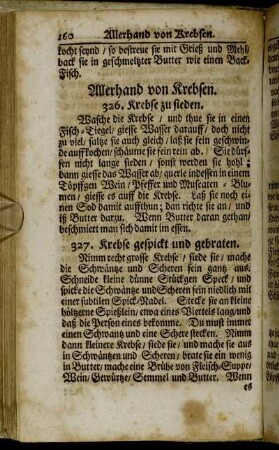 160 Allerhand von Krebsen.
kocht seynd / so bestreue sie mit Grieß und Mehl/
back sie in geschmeltzter Butter wie einen Back-
Fisch.
Allerhand von Krebsen.
326. Krebse zu sieden.
Wasche die Krebse / und thue sie in einen
Fisch-Tiegel / giesse Wasser darauff / doch nicht
zu viel / saltze sie auch gleich / laß sie fein geschwin-
de auffkochen / schäume sie fein rein ab. Sie dürf-
fen nicht lange sieden / sonst werden sie hohl;
dann giesse das Wasser ab / querle indessen in einem
Töpffgen Wein / Pfeffer und Muscaten-Blu-
men / giesse es auff die Krebse. Laß sie noch ei-
nen Sod damit auffthun; dan richte sie an / und
iß Butter darzu. Wenn Butter daran gethan /
beschmiert man sich damit im essen.
327. Krebse gespickt und gebraten.
Nimm recht grosse Krebse / siede sie / mache
die Schwäntze und Scheren fein gantz aus.
Schneide kleine dünne Stückgen Speck / und
spicke die Schwäntze und Scheren fein niedlich mit
einer subtilen Spick-Nadel. Stecke sie an kleine
höltzerne Spießlein / etwa eines Viertels lang / und
daß die Person eines bekomme. Du must immer
einen Schwantz und eine Schere stecken. Nimm
dann kleinere Krebse / siede sie / und mache sie aus
in Schwäntzen und Scheren / brate sie ein wenig
in Butter / mache eine Brühe von Fleisch-Suppe /
Wein / Gewürtze / Semmel und Butter. Wenn
es